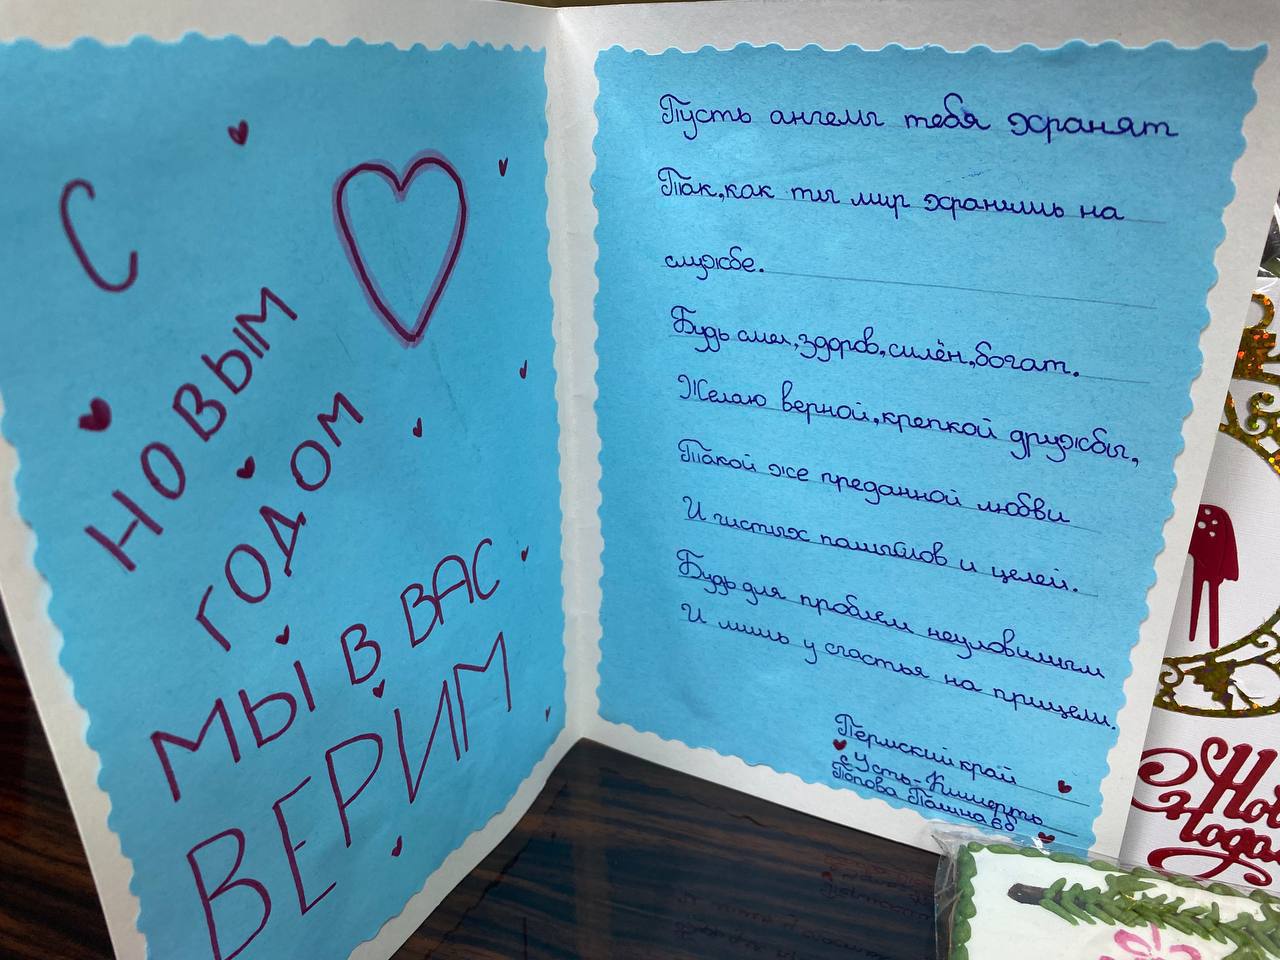 С
НОВЫМ
ГОДОМ
МЫ В ВАС
ВЕРИМ
Пусть ангелы тебя хранят
Так, как ты мир хранишь на
службе.
Будь смел, здоров, силён, богат.
Желаю верной, крепкой дружбы,
Такой же преданной любви
И чистых помыслов и целей.
Будь для проблем неуловимым
И лишь у счастья на прицели.
Пермский край
с Усть-Кишерть
Попова Полина 6б
Но
Года